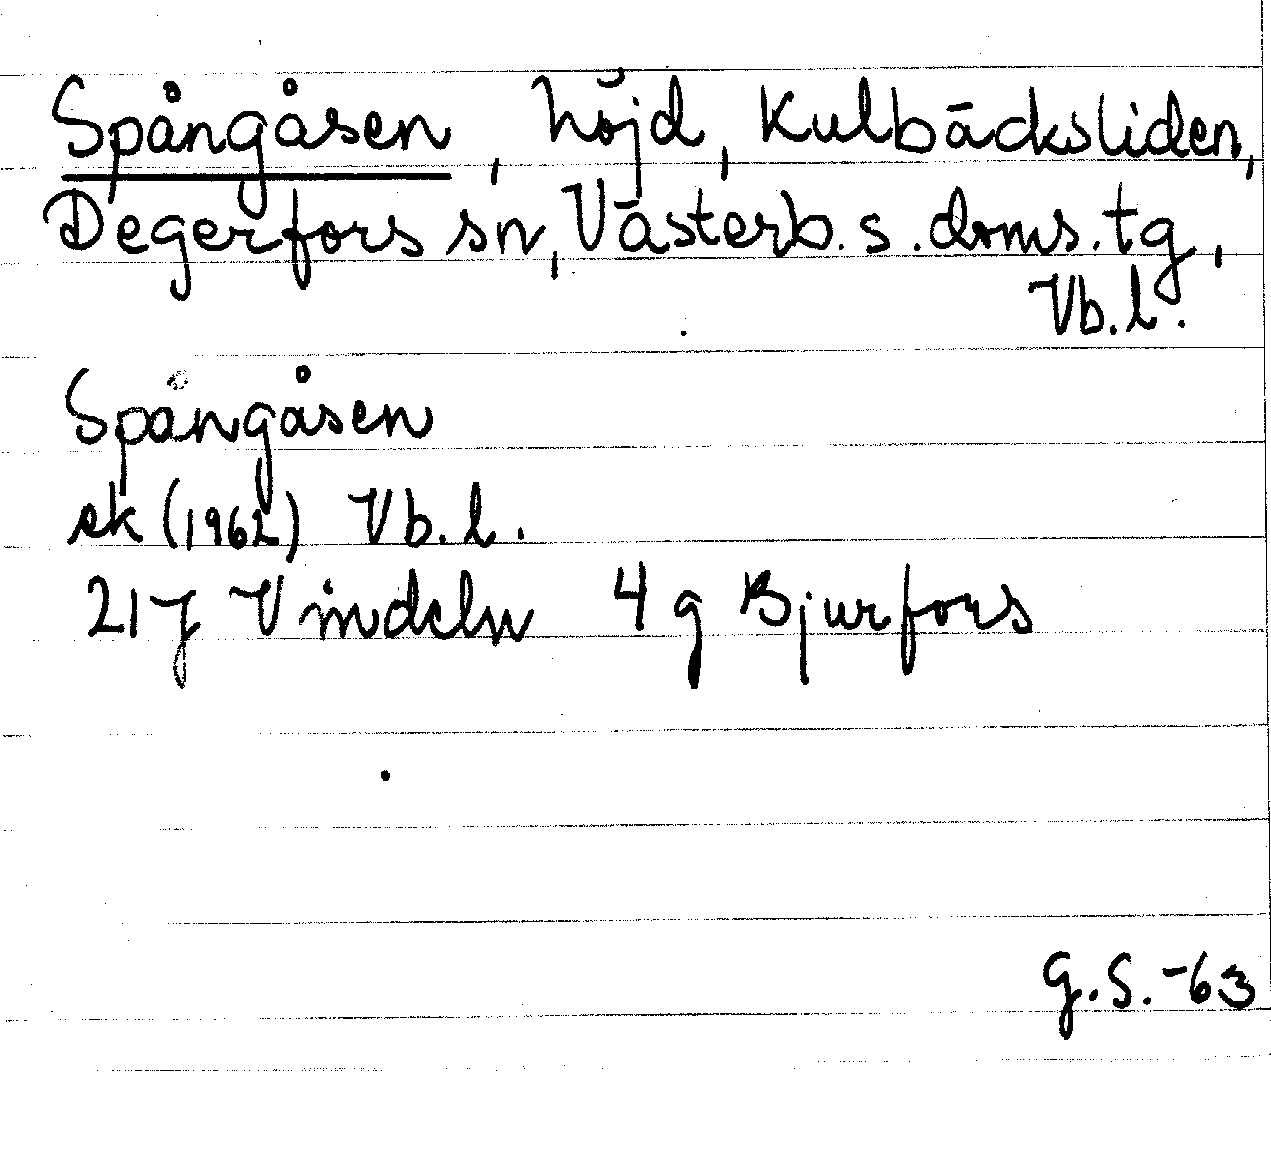 Spångåsen, höjd, Kulbäcksliden,
Degerfors sn, Västerb. s. doms. tg,
Vb. l.
Spångåsen
ek (1962) Vb. l.
21 J Vindeln 4 g Bjurfors
G. S. -63